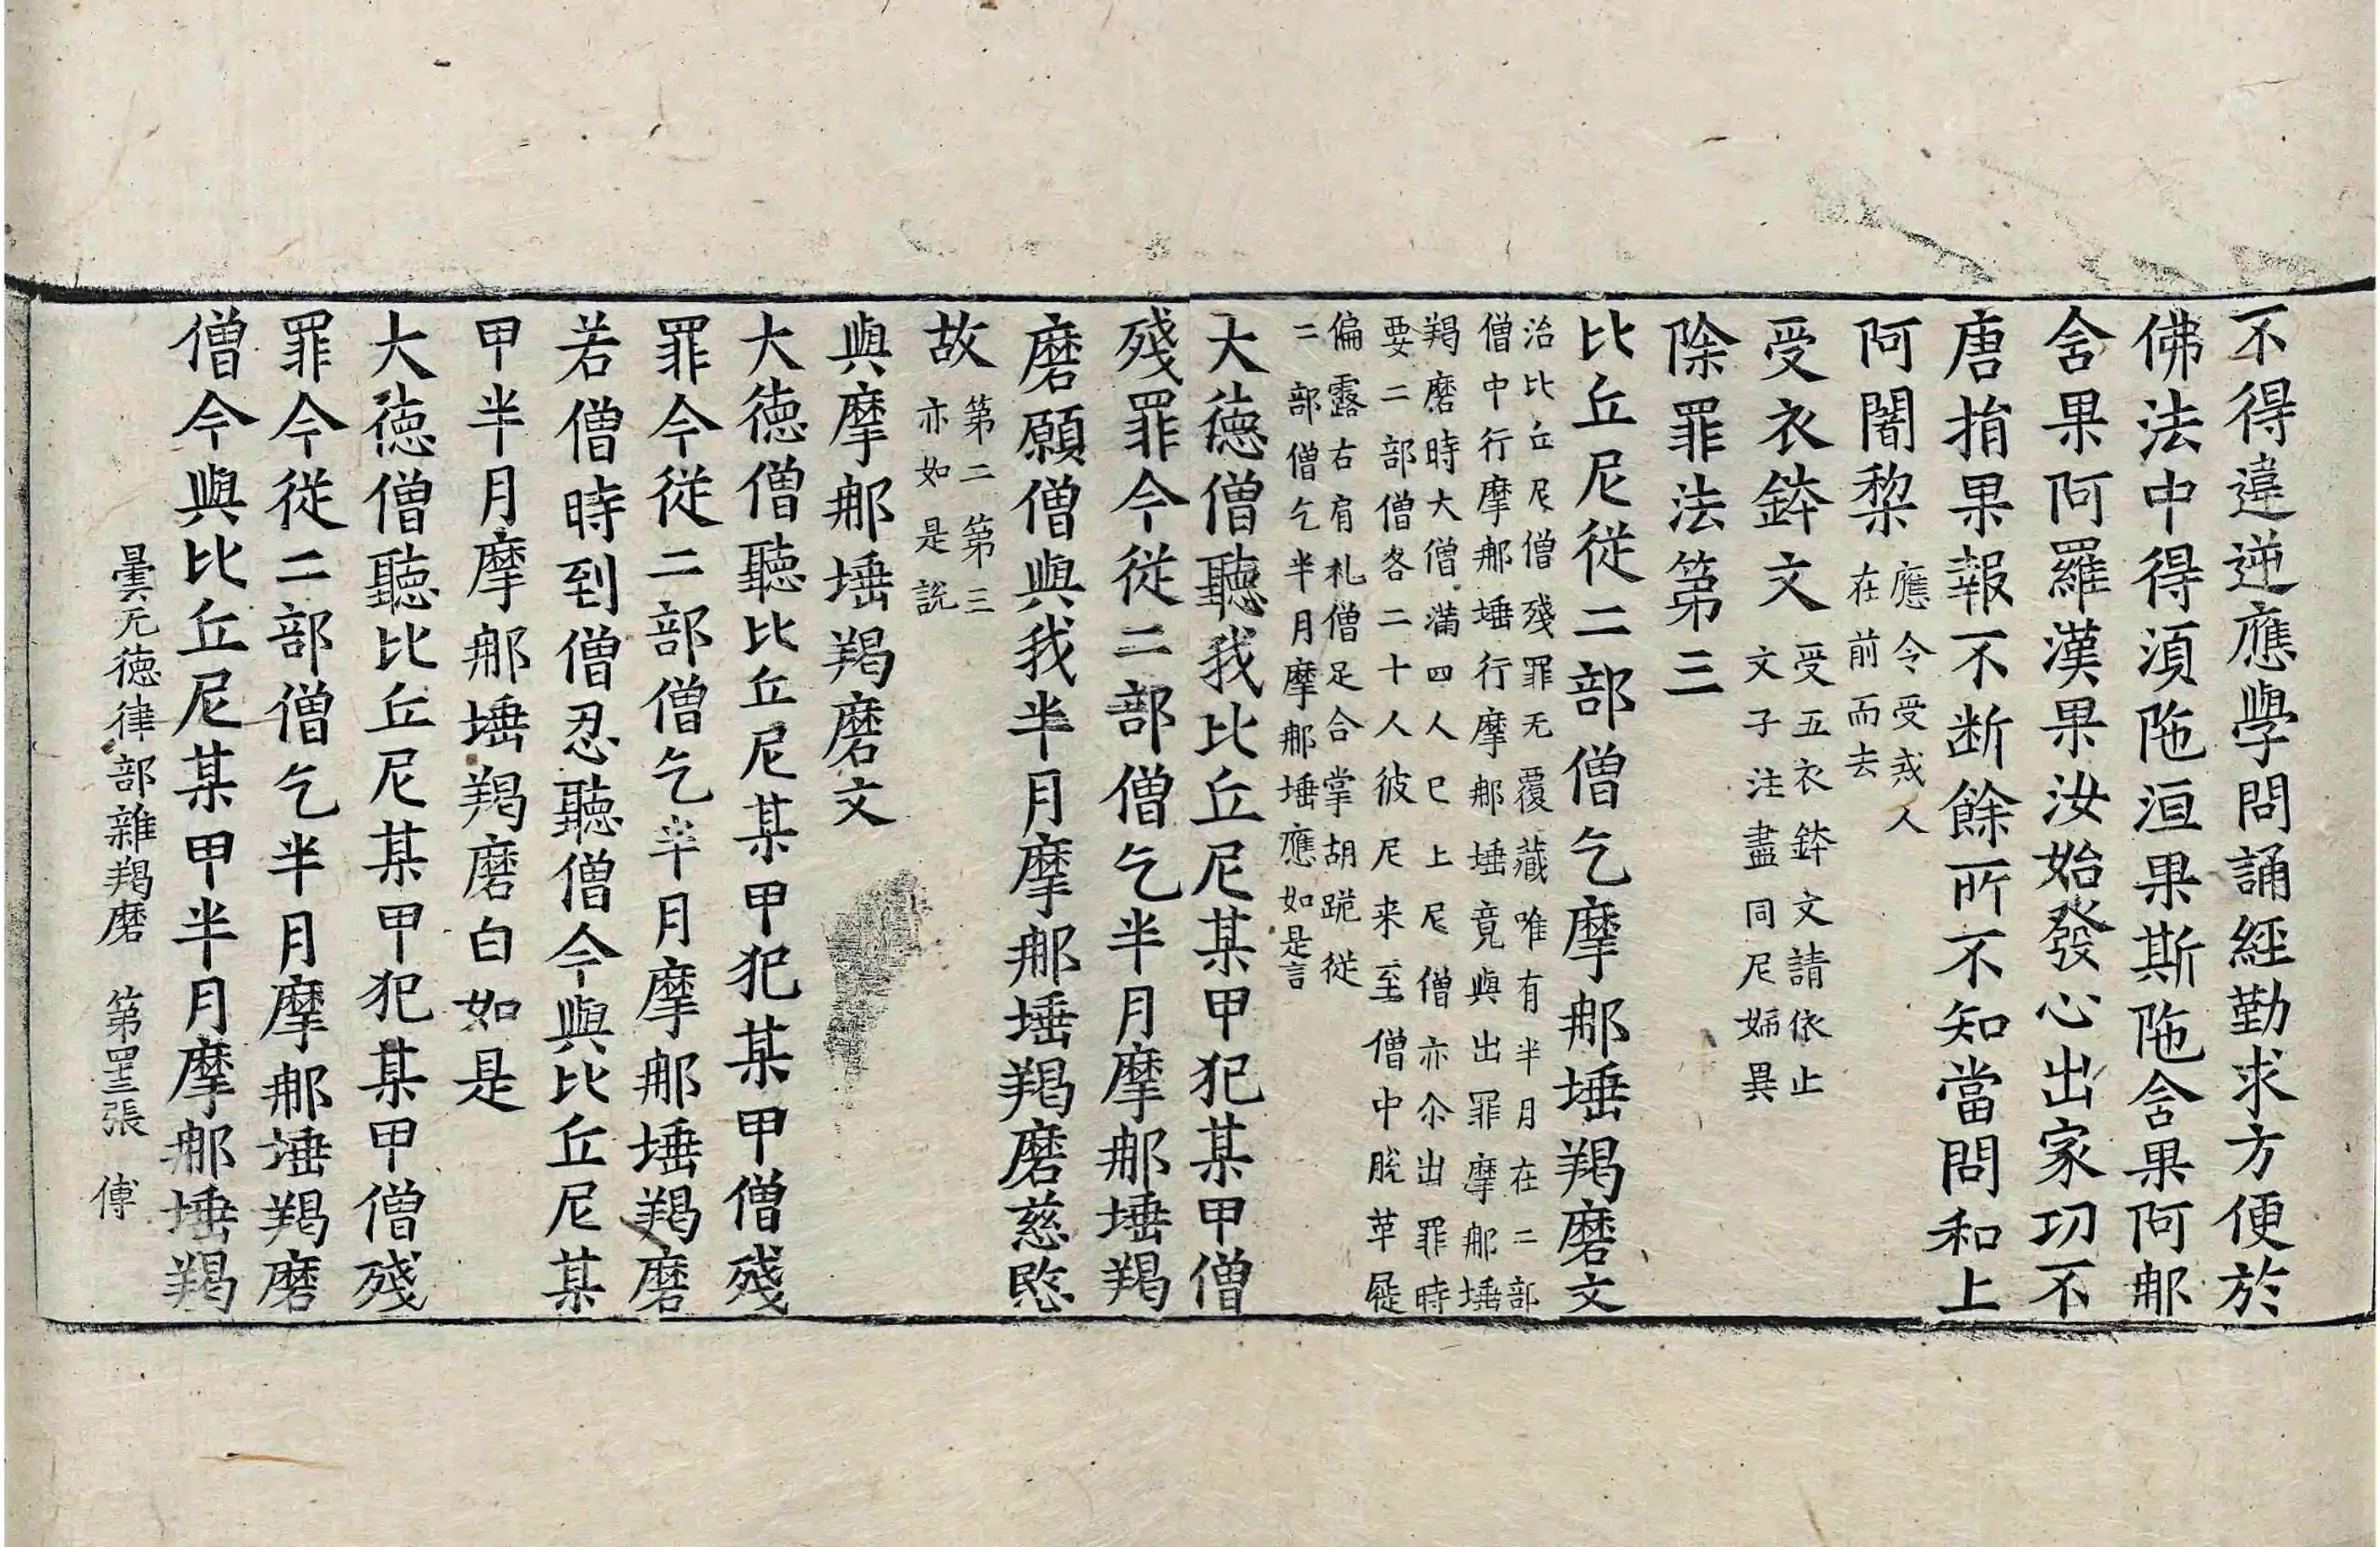 不得違逆應學問誦經勤求方便於
佛法中得湏陁洹果斯陁含果阿𨚗
含果阿羅漢果汝始發心出家功不
唐捐果報不断餘所不知當問和上
阿闍梨
應令受戒人
在前而去
受衣鉢文
受五衣鉢文請依止
文子注盡同尼婦異
除罪法第三
比丘尼從二部僧乞摩𨚗埵羯磨文
治比丘尼僧殘罪无覆藏唯有半月在二部
僧中行摩𨚗埵行摩𨚗埵竟與出罪摩𨚗埵
羯磨時大僧滿四人已上尼僧亦尒出罪時
要二部僧各二十人彼尼来至僧中脫革屣
偏露右肩礼僧足合掌胡跪從
二部僧乞半月摩𨚗埵應如是言
大德僧聽我比丘尼某甲犯某甲僧
殘罪今從二部僧乞半月摩𨚗埵羯
磨願僧與我半月摩𨚗埵羯磨慈愍
故
第二第三
亦如是說
與摩𨚗埵羯磨文
大德僧聽比丘尼某甲犯某甲僧殘
罪今從二部僧乞半月摩𨚗埵羯磨
若僧時到僧忍聽僧今與比丘尼某
甲半月摩𨚗埵羯磨白如是
大德僧聽比丘尼某甲犯某甲僧殘
罪今從二部僧乞半月摩𨚗埵羯磨
僧今與比丘尼某甲半月摩𨚗埵羯
曇无德律部雜羯磨 第四十三張 傅